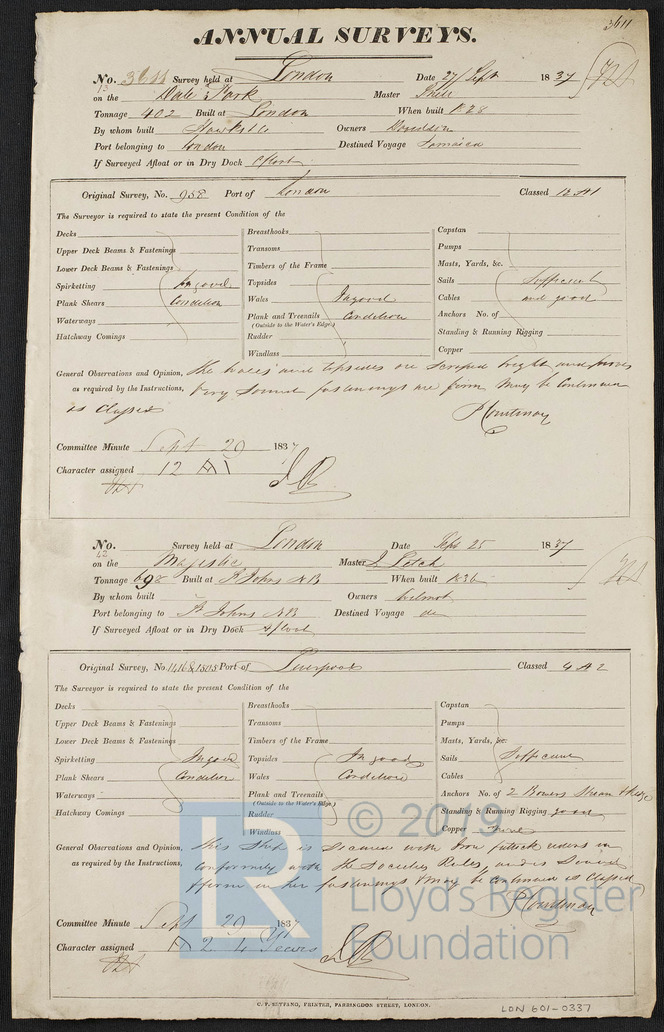 3611
ANNUAL SURVEYS.
No. 3611 Survey held at London Date 27 Sept 1837
13
on the Dale Park Master
Tonnage 402 Built at London When built 1828
By whom built Hawks & Co Owners Davidson
Port belonging to London Destined Voyage Jamaica
If Surveyed Afloat or in Dry Dock Afloat
Original Survey, No. 958 Port of London Classed 12 A1
The Surveyor is required to state the present Condition of the
Decks Breasthooks Capstan
Upper Deck Beams & Fastenings Transoms Pumps
Lower Deck Beams & Fastenings Timbers of the Frame Masts, Yards, &c.
Spirketting In good Topsides Sails Sufficient
Plank Shears Condition Wales In good Cables and good
Waterways Plank and Treenails Condition Anchors No. of
(Outside to the Water's Edge)
Hatchway Comings Rudder Standing & Running Rigging
Windlass Copper
General Observations and Opinion, The Wales and topsides are scraped bright and proves
as required by the Instructions, very sound fastenings are firm May be Continued
as Classed P Courtenay
Committee Minute Sept 29 1837
Character assigned 12 A1
No. Survey held at London Date Sept 25 1837
42
on the Majestic Master J. Leitch
Tonnage 698 Built at St Johns NB When built 1836
By whom built Owners Wilmot
Port belonging to St Johns NB Destined Voyage do
If Surveyed Afloat or in Dry Dock Afloat
Original Survey, No. 1416 & 1505 Port of Liverpool Classed 4 A2
The Surveyor is required to state the present Condition of the
Decks Breasthooks Capstan
Upper Deck Beams & Fastenings Transoms Pumps
Lower Deck Beams & Fastenings Timbers of the Frame Masts, Yards, &c.
Spirketting In good Topsides In good Sails Sufficient
Plank Shears Condition Wales Condition Cables
Waterways Plank and Treenails Anchors No. of 2 Bowers Stream & Kedge
(Outside to the Water's Edge)
Hatchway Comings Rudder Standing & Running Rigging good
Windlass Copper
General Observations and Opinion, This Ship is secured with Iron futtock riders in
as required by the Instructions, Conformity with the Societies Rules, and is Sound
& firm in her fastenings & May be Continued as Classed
P Courtenay
Committee Minute Sept 29 1837
Character assigned A 2 4 Years
© 2019
Lloyd's Register
Foundation
LR
PRINTER, FARRINGDON STREET, LONDON.
LON 601-0337